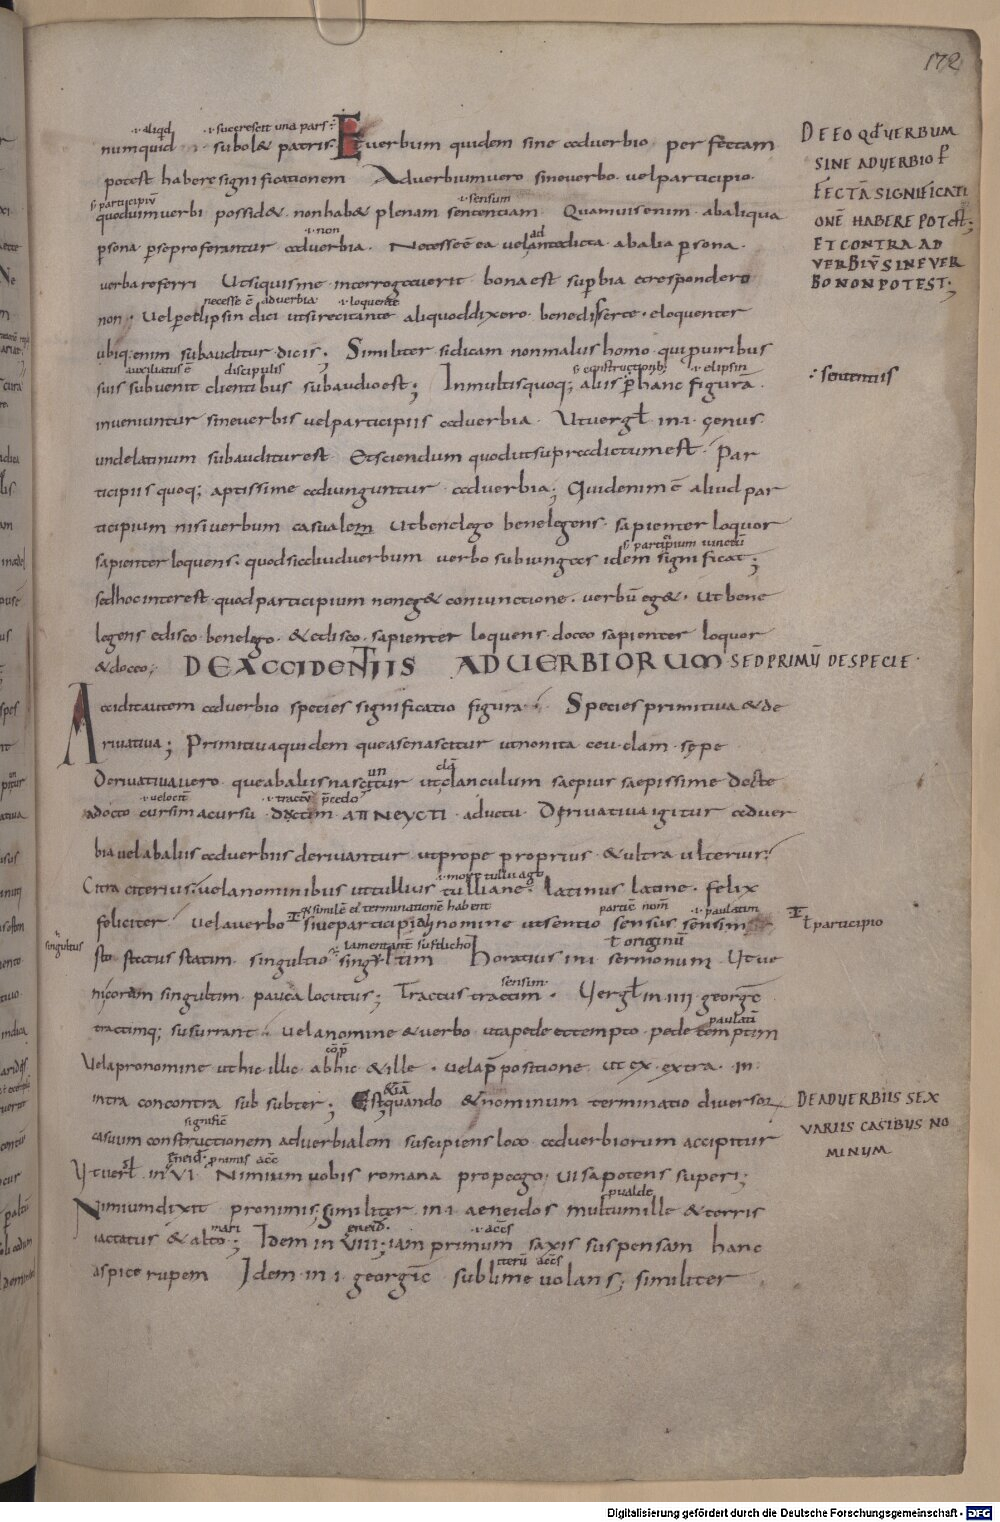 172
·i· aliqd ·i· succrescit una pars
numquid subol& patris. Et verbum quidem sine adverbio per fectam
potest habere significationem Adverbium vero sine verbo vel participio
s participiū ·i· sensum
quod vim verbi possid& non hab& plenam sententiam Quamvis enim ab aliqua
·i· non ad
psona p se proferuntur adverbia. Necesse ē ea vel antedicta ab alia psona
verba referri Ut si quis me interrogaverit bona est supbia respondero
necesse ē adverbia ·i· loquente
non. Vel p elipsin dici ut si recitante aliquo dixero bene disserte eloquenter
ubiq; enim subauditur dicis; Similiter si dicam non malus homo qui p viribus
auxiliatus ē discipulis s constructionib; ·i· elipsin
suis subvenit clientibus subaudio est; In multis quoq; aliis p hanc figurā
inveniuntur sine verbis vel participiis adverbia Ut vergł in ·i· genus
unde latinum subauditur est Et sciendum quod ut supra dictum est Par
ticipiis quoq; aptissime adiunguntur adverbia; Quid enim ē aliud par
ticipium nisi verbum casuale Ut bene lego bene legens sapienter loquor
s participium iunctū
sapienter loquens. quod si ad adverbum verbo subiungas idem significat;
sed hoc interest quod participium non eg& coniunctione. verbū eg&. Ut bene
legens edisco bene lego & edisco. sapienter loquens doceo sapienter loquor
& doceo; DE ACCIDENTIIS ADVERBIORUM SED PRIMŪ DE SPECIE
Accidit autem adverbio species significatio figura Species primitiva & de
rivativa; Primitiva quidem que a se nascitur ut non ita ceu clam sepe
Derivativa vero que ab aliis nascitur ut clanculum saepius saepissime docte
·i· velocit
a docto cursim a cursu ductim ΑΠ ΝΕΥCΤΙ a ductu Derivativa igitur adver
bia vel ab aliis adverbiis derivantur ut prope proprius & ultra ulterius
·i· more tullii ago
Citra citerius. vel a nominibus ut tullius tulliane. latinus latine. felix
similē et terminationē habent ·i· paulatim
feliciter vel a verbo sive participio ut sentio sensus sensim
singultus ł originū
sto status statim. singultio singultim Horatius in ·i· sermonum. Ut ve
sensim
ni coram singultim pauca locutus; Tractus tractim. Vergł in ·iiii· georgc
paulati
tractimq; susurrant. vel a nomine & verbo ut a pede & tempto pede temptim
Vel a pronomine ut hic illic ab hic & ille. vel a ppositione ut ex extra. in
&iā
intra con contra sub subter; Est quando & nominum terminatio diversor
significē
casuum constructionem adverbialem suscipiens loco adverbiorum accipitur
Ut vergł in VI Nimium vobis romana propago visa potens superi;
p valde
Nimium dixit pro nimis similiter in ·i· aeneidos multum ille & terris
mari eneid ·i·
iactatus & alto; Idem in VIII; iam primum saxis suspensam hanc
aspice rupem Idem in ·i· georgic sublime volans; similiter
DE EO Qđ VERBUM
SINE ADVERBIO P
FECTA SIGNIFICATI
ONĒ HABERE POTEST;
ET CONTRA AD
VERBIŪ SINE VER
BO NON POTEST;
sententiis
ł participio
DE ADVERBIIS SEX
VARIIS CASIBUS NO
MINUM
Digitalisierung gefördert durch die Deutsche Forschungsgemeinschaft - DFG